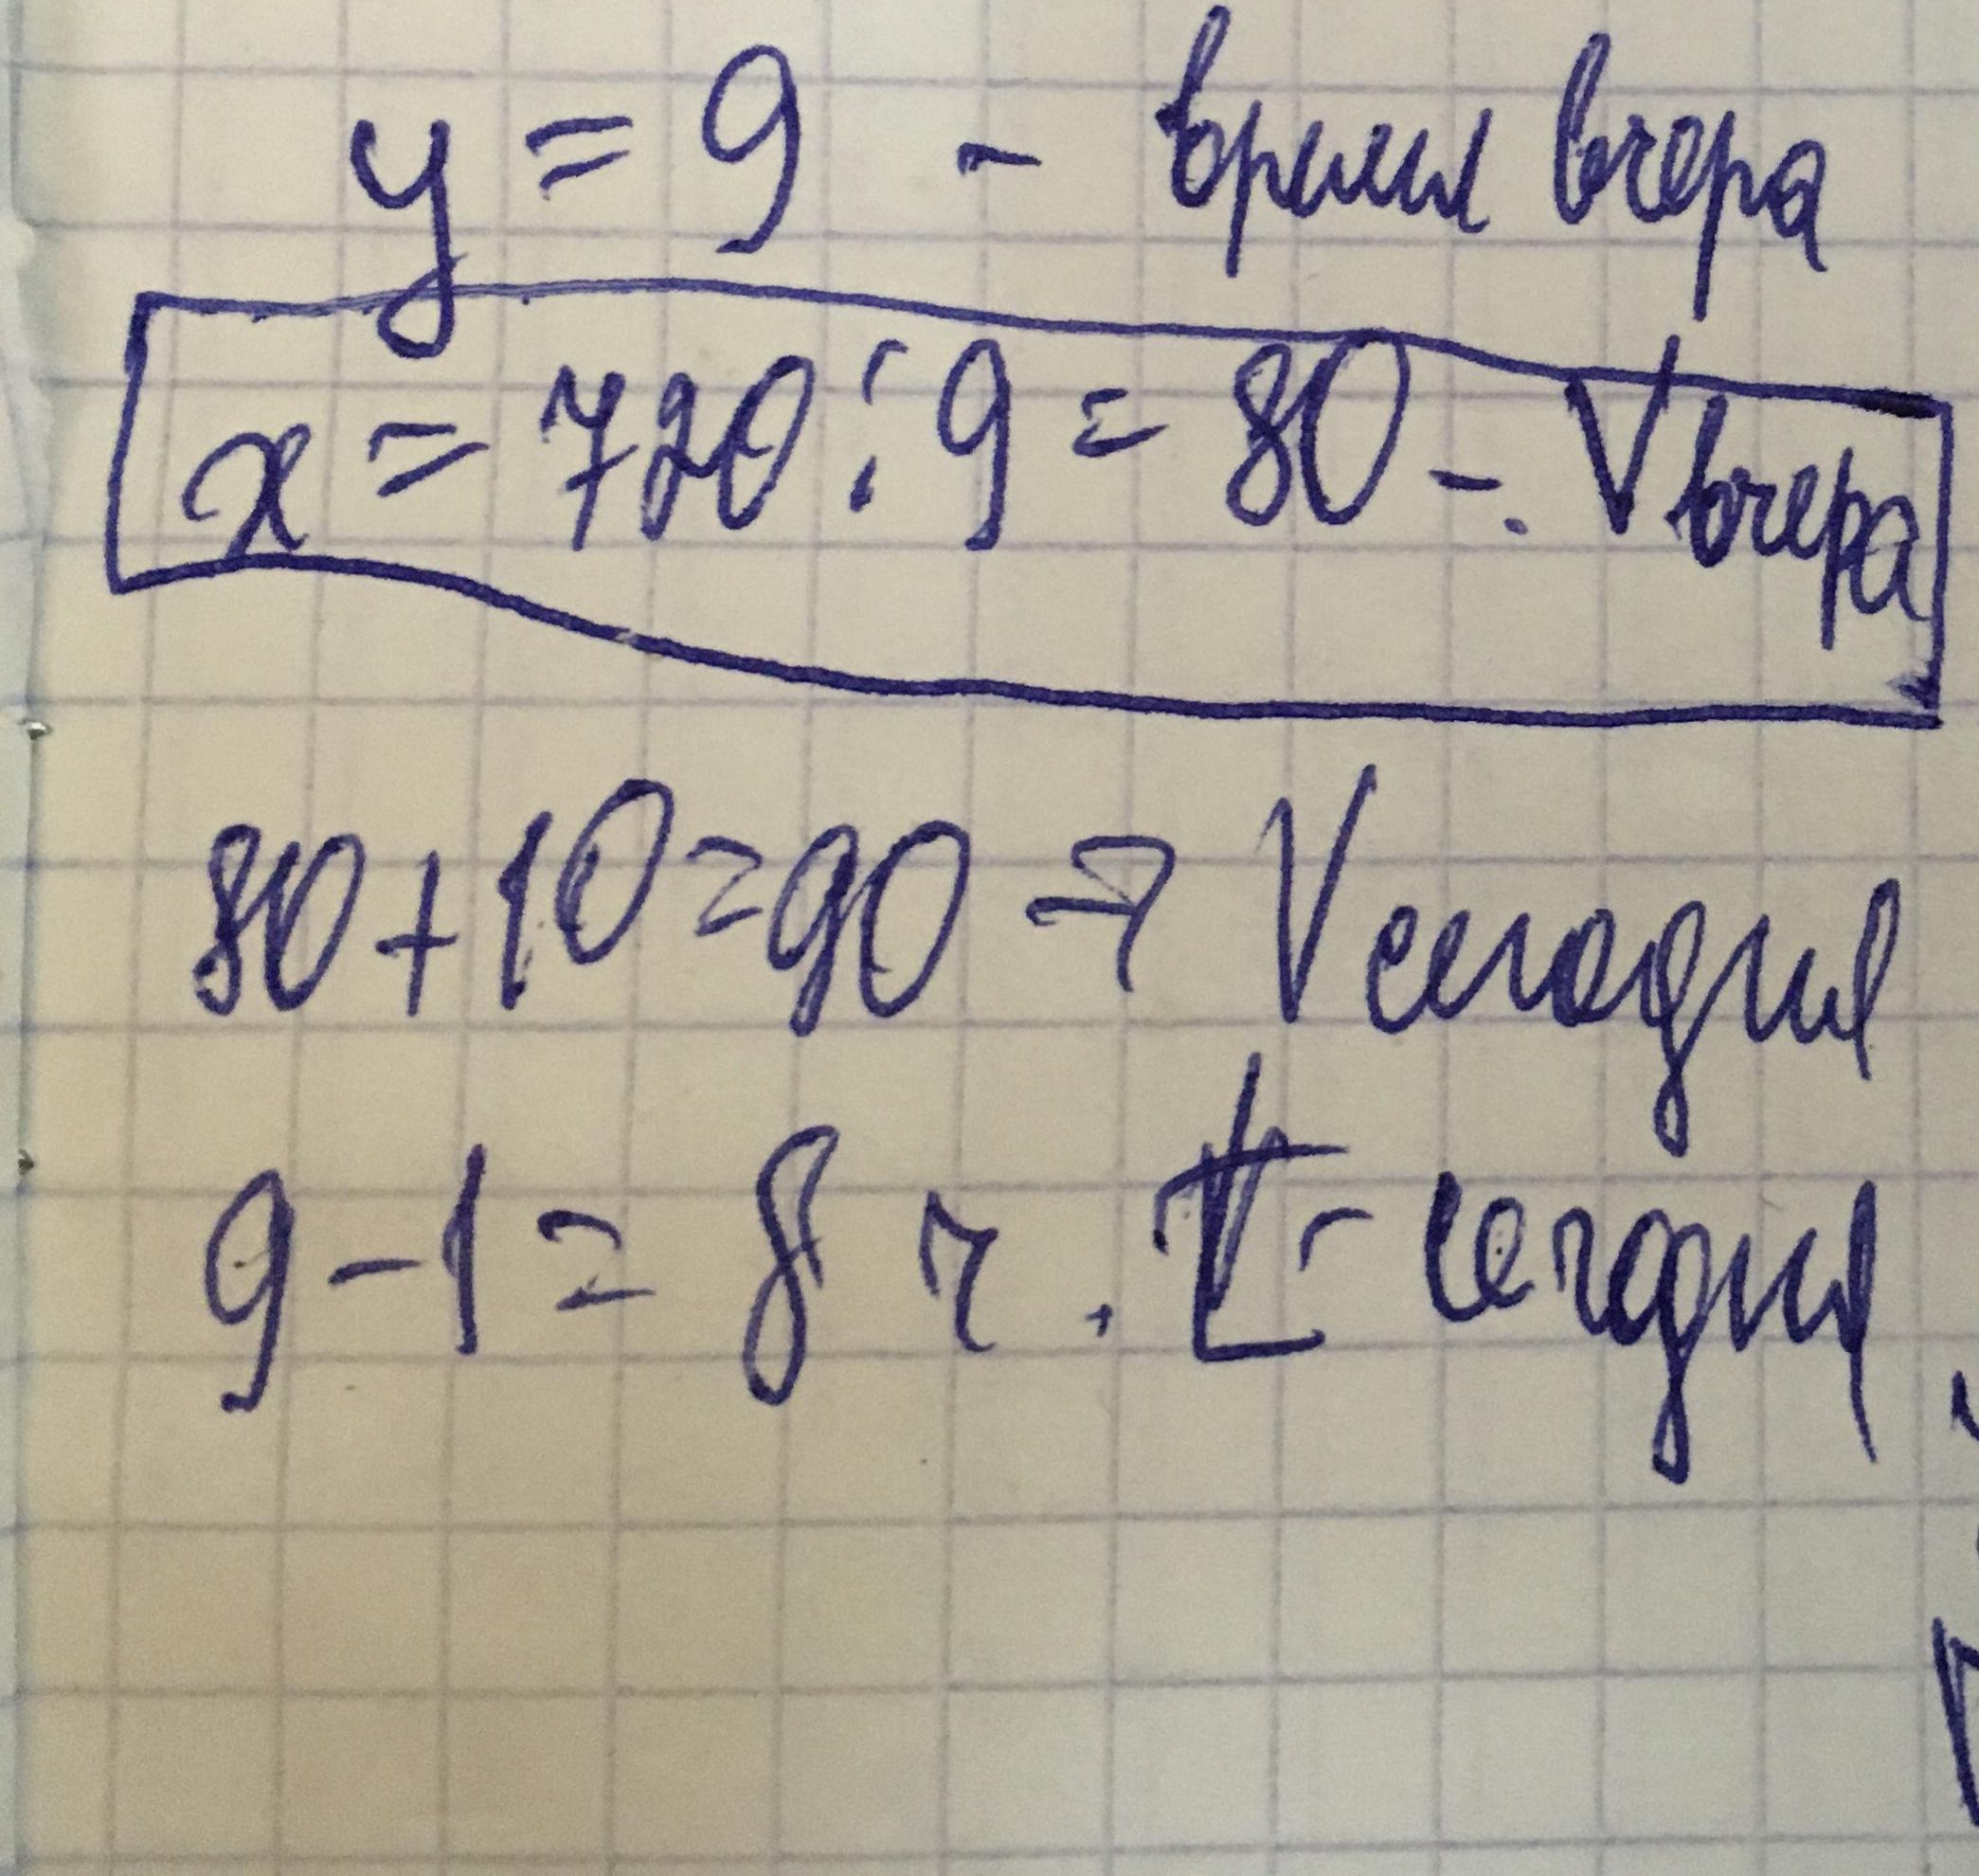 y = 9 - время вчера
x = 720 : 9 = 80 - Vвчера
80 + 10 = 90 → V сегодня
9 - 1 = 8 ч. t - сегодня